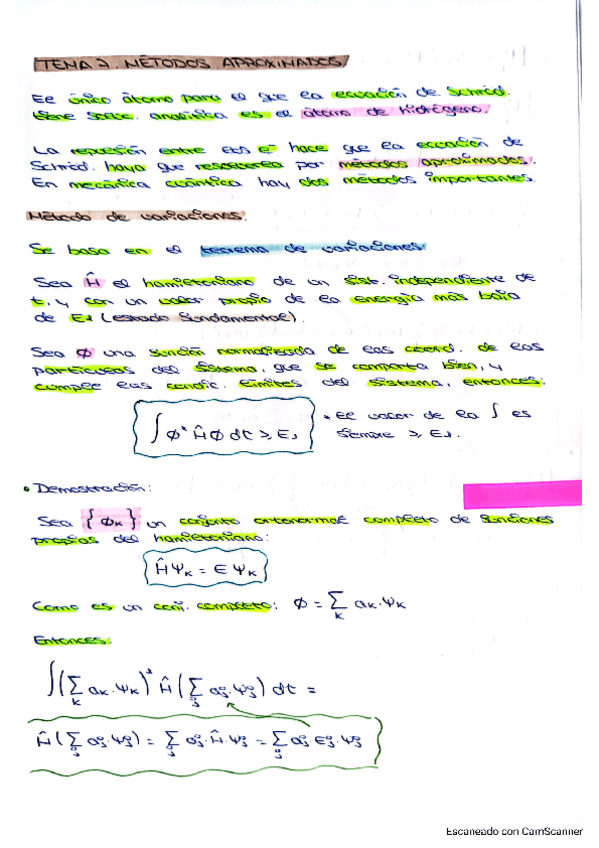 TEMA 7. MÉTODOS APROXIMADOS
El único átomo para el que la ecuación de Schröd.
tiene soluc. analítica es el átomo de hidrógeno.
La repulsión entre los e⁻ hace que la ecuación de
Schröd. haya que resolverla por métodos aproximados.
En mecánica cuántica hay dos métodos importantes.
Método de variaciones.
Se basa en el teorema de variaciones:
Sea Ĥ el hamiltoniano de un sist. independiente de
t, y con un valor propio de la energía más baja
de E₁ (estado fundamental).
Sea Φ una función normalizada de las coord. de las
partículas del sistema, que se comporta bien, y
cumple las condic. límites del sistema, entonces:
∫ Φ* Ĥ Φ dt ≥ E₁
* El valor de la ∫ es
siempre ≥ E₁.
• Demostración:
Sea {Φₖ} un conjunto ortonormal completo de funciones
propias del hamiltoniano:
Ĥ Ψₖ = E Ψₖ
Como es un conj. completo: Φ = Σₖ aₖ·Ψₖ
Entonces:
∫(Σₖ aₖ·Ψₖ)* Ĥ (Σⱼ aⱼ·Ψⱼ) dt =
Ĥ(Σⱼ aⱼ·Ψⱼ) = Σⱼ aⱼ·Ĥ·Ψⱼ = Σⱼ aⱼ·Eⱼ·Ψⱼ
Escaneado con CamScanner